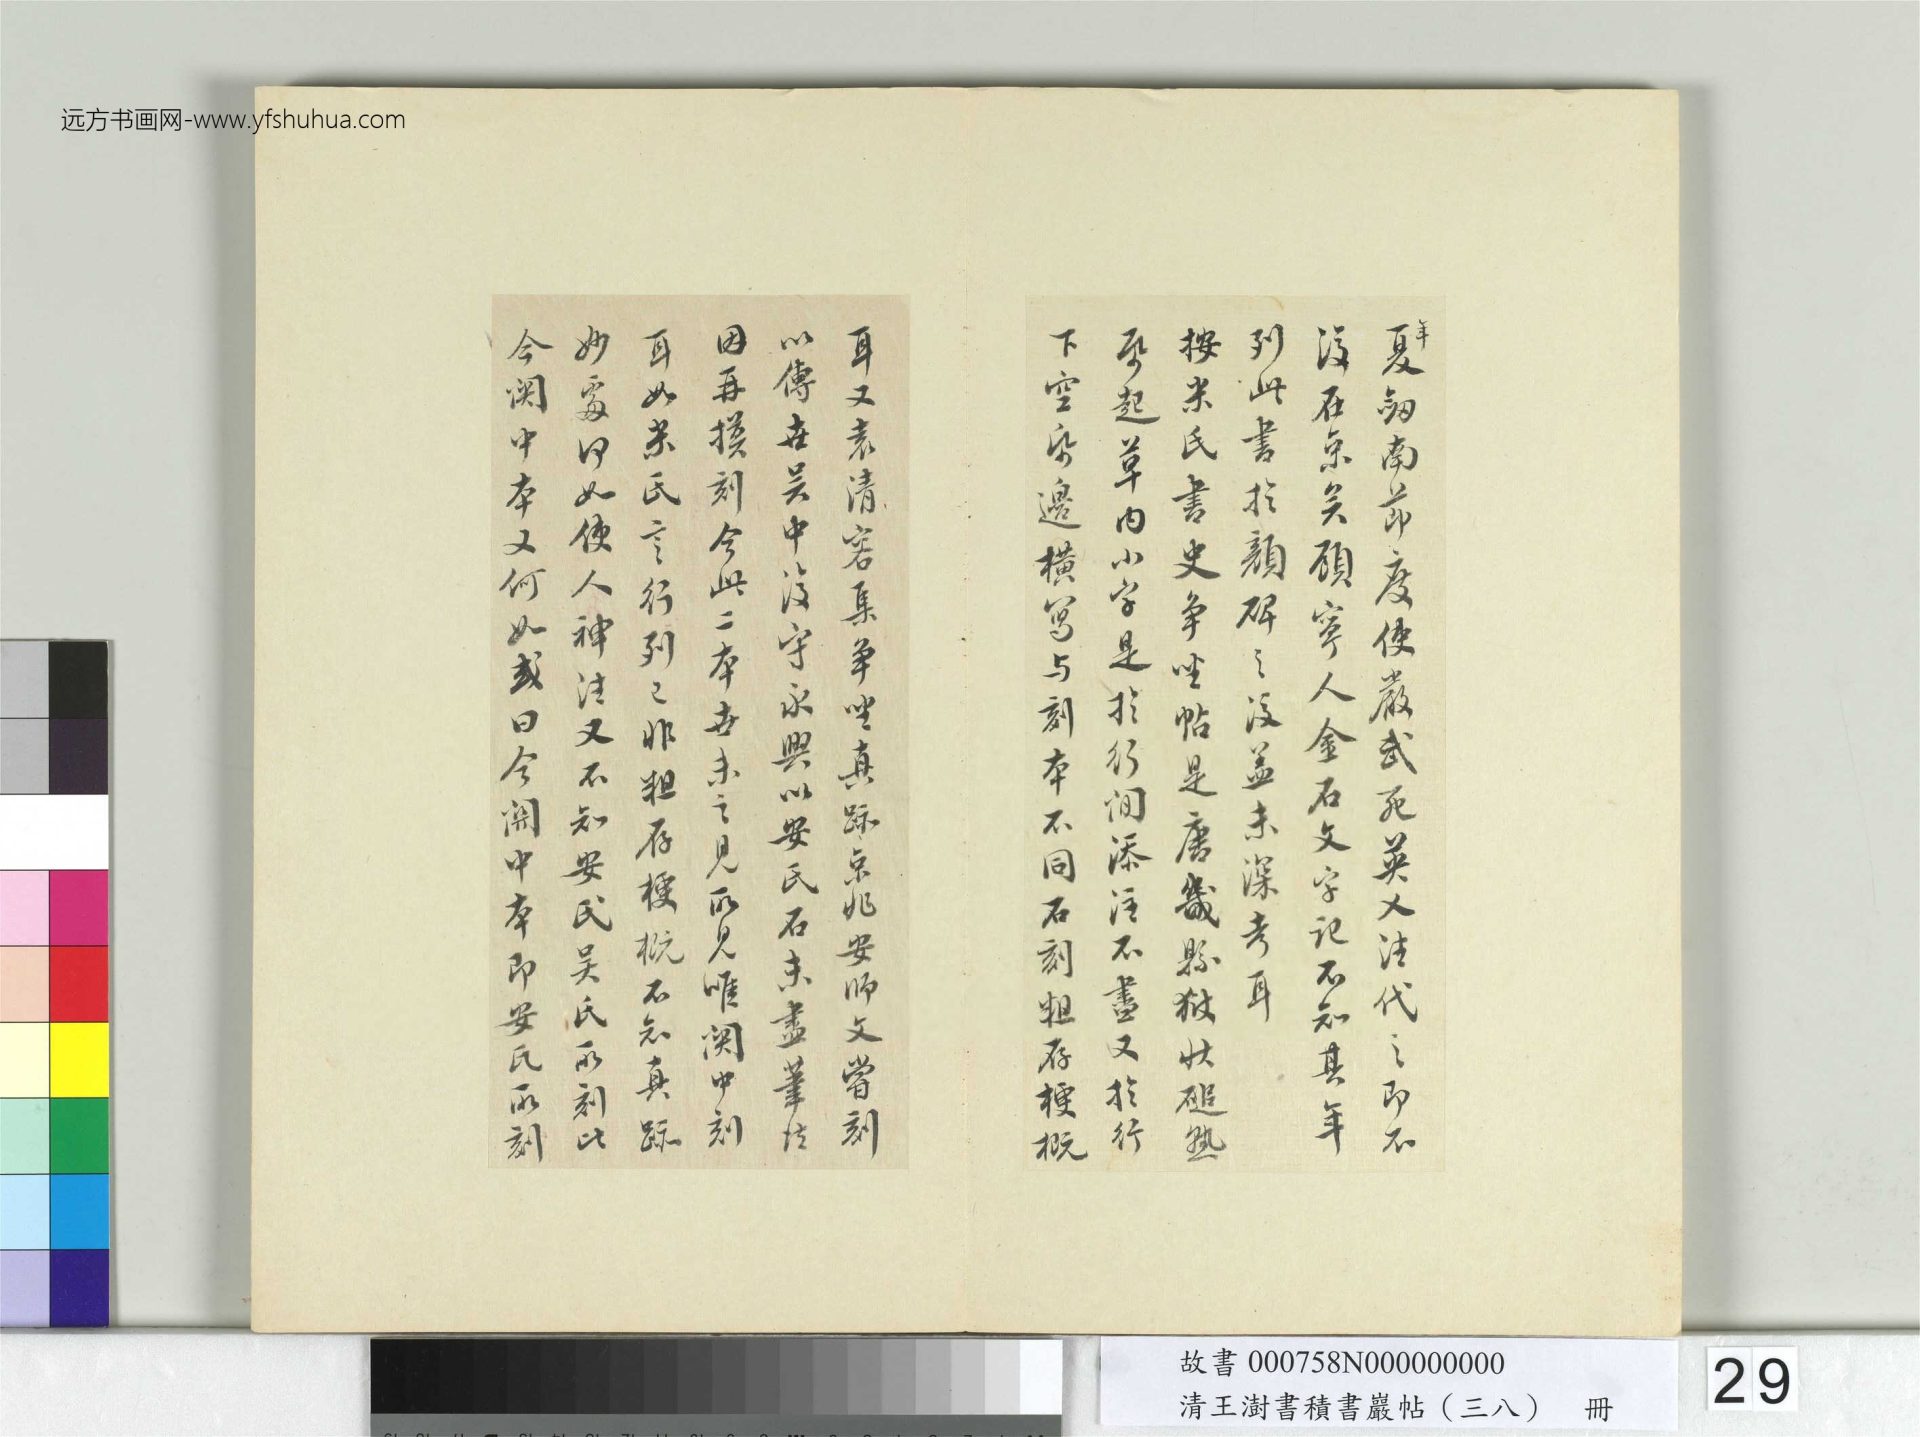 远方书画网-www.yfshuhua.com
年
夏劒南節度使嚴武死英乂往代之即不
復在京矣顧寧人金石文字記不知其年
列此書於顏碑之後蓋未深考耳
按米氏書史争坐帖是唐畿縣獄狀磓熟
紙起草内小字是於行間添注不盡又於行
下空紙邊橫寫与刻本不同石刻粗存梗概
耳又袁清容集争坐真跡京兆安師文嘗刻
以傳世吴中復守永興以安氏石未盡筆法
因再摸刻今此二本世未之見所見唯関中刻
耳如米氏言行列已非粗存梗概不知真跡
妙處何如使人神往又不知安氏吴氏所刻比
今関中本又何如或曰今関中本即安氏所刻
故書 000758N000000000
清王澍書積書巖帖（三八） 冊
29